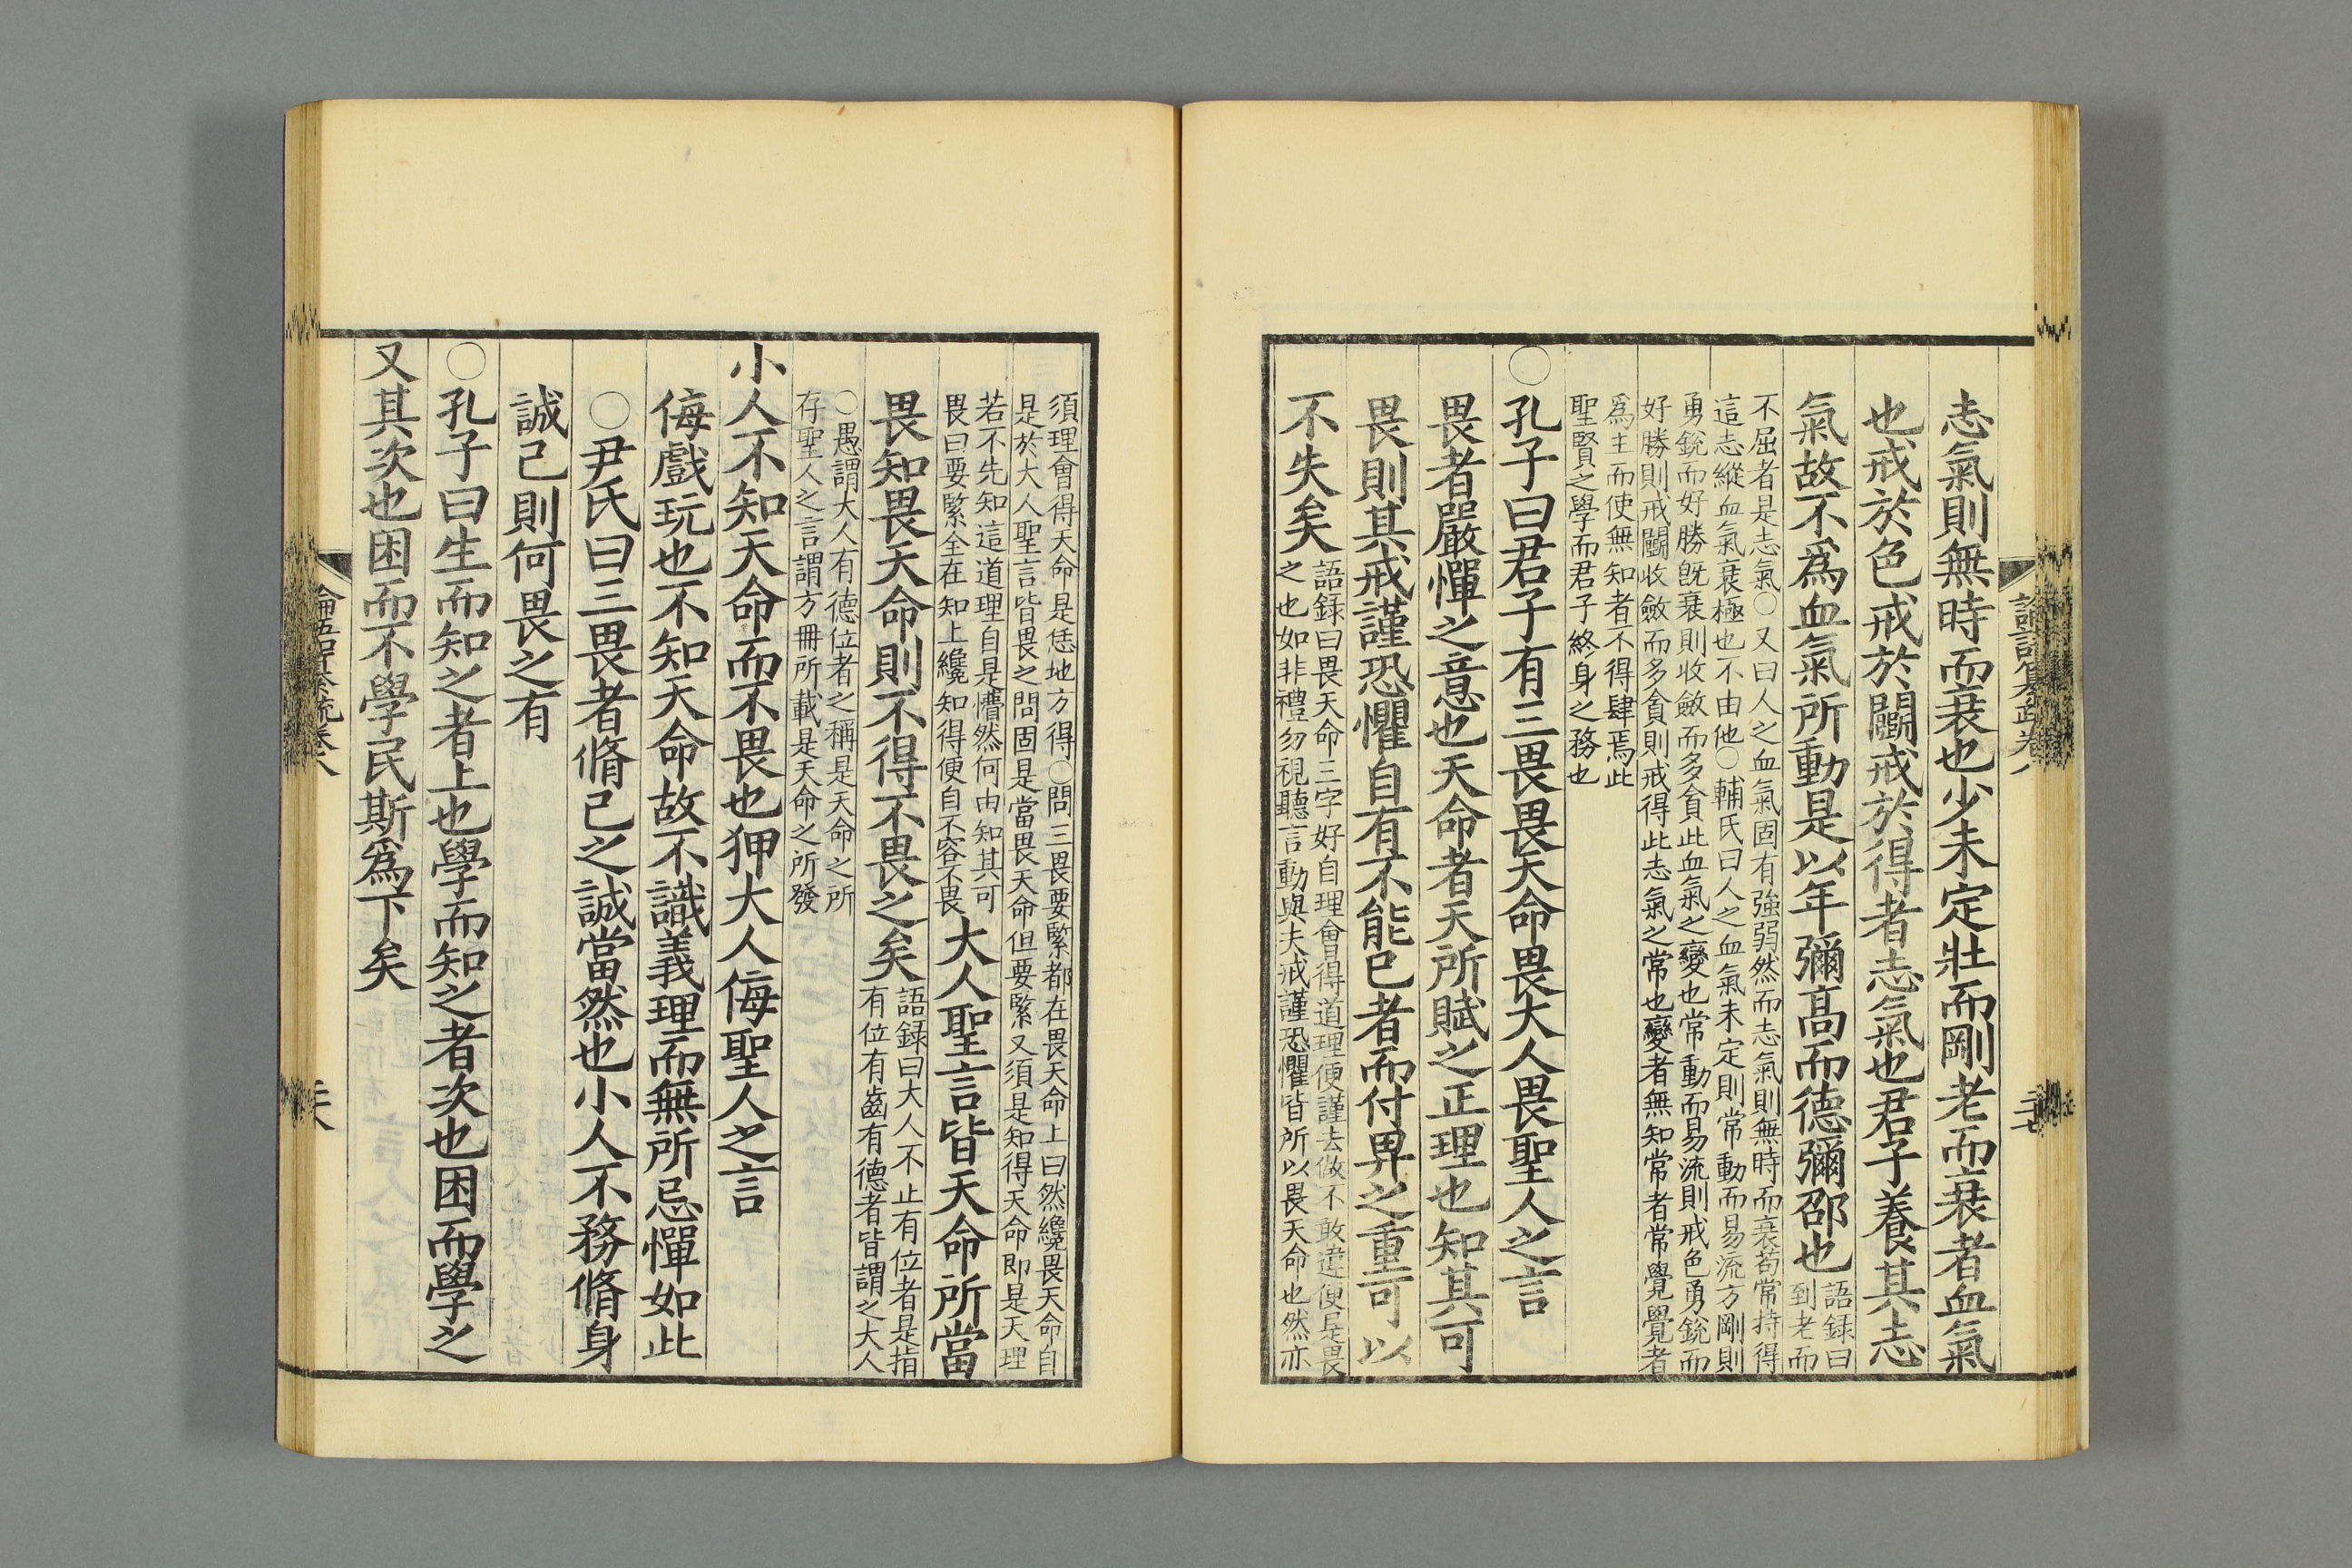 志氣則無時而衰也少未定壯而剛老而衰者血氣
也戒於色戒於鬬戒於得者志氣也君子養其志
氣故不爲血氣所動是以年彌高而德彌邵也語録曰
到老而
不屈者是志氣○又曰人之血氣固有強弱然而志氣則無時而衰苟常持得
這志縱血氣衰極也不由他○輔氏曰人之血氣未定則常動而易流方剛則
勇銳而好勝旣衰則收斂而多貪此血氣之變也常動而易流則戒色勇銳而
好勝則戒鬬收斂而多貪則戒得此志氣之常也變者無知常者常覺覺者
爲主而使無知者不得肆焉此
聖賢之學而君子終身之務也
○孔子曰君子有三畏畏天命畏大人畏聖人之言
畏者嚴憚之意也天命者天所賦之正理也知其可
畏則其戒謹恐懼自有不能已者而付畀之重可以
不失矣語録曰畏天命三字好自理會得道理便謹去做不敢違便是畏
之也如非禮勿視聽言動與夫戒謹恐懼皆所以畏天命也然亦
須理會得天命是恁地方得○問三畏要緊都在畏天命上曰然纔畏天命自
是於大人聖言皆畏之問固是當畏天命但要緊又須是知得天命即是天理
若不先知這道理自是懵然何由知其可
畏曰要緊全在知上纔知得便自不容不畏大人聖言皆天命所當
畏知畏天命則不得不畏之矣語録曰大人不止有位者是指
有位有齒有德者皆謂之大人
○愚謂大人有德位者之稱是天命之所
存聖人之言謂方冊所載是天命之所發
小人不知天命而不畏也狎大人侮聖人之言
侮戲玩也不知天命故不識義理而無所忌憚如此
○尹氏曰三畏者脩己之誠當然也小人不務脩身
誠己則何畏之有
○孔子曰生而知之者上也學而知之者次也困而學之
又其次也困而不學民斯爲下矣